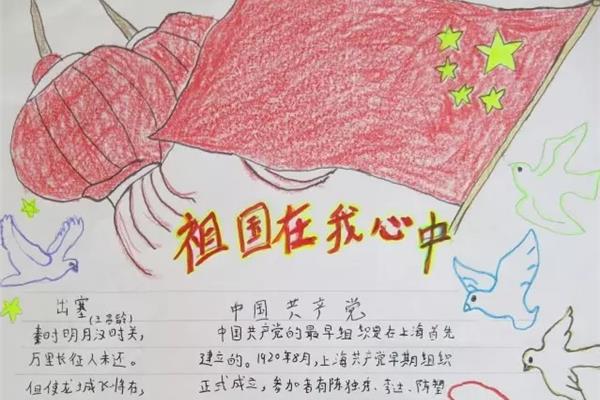 祖国在我心中
出塞(王昌龄)
秦时明月汉时关,
万里长征人未还。
但使龙城飞将在,
中国共产党
中国共产党的最早组织是在上海首先
建立的。1920年8月,上海共产党早期组织
正式成立,参加者有陈独秀、李达、陈望